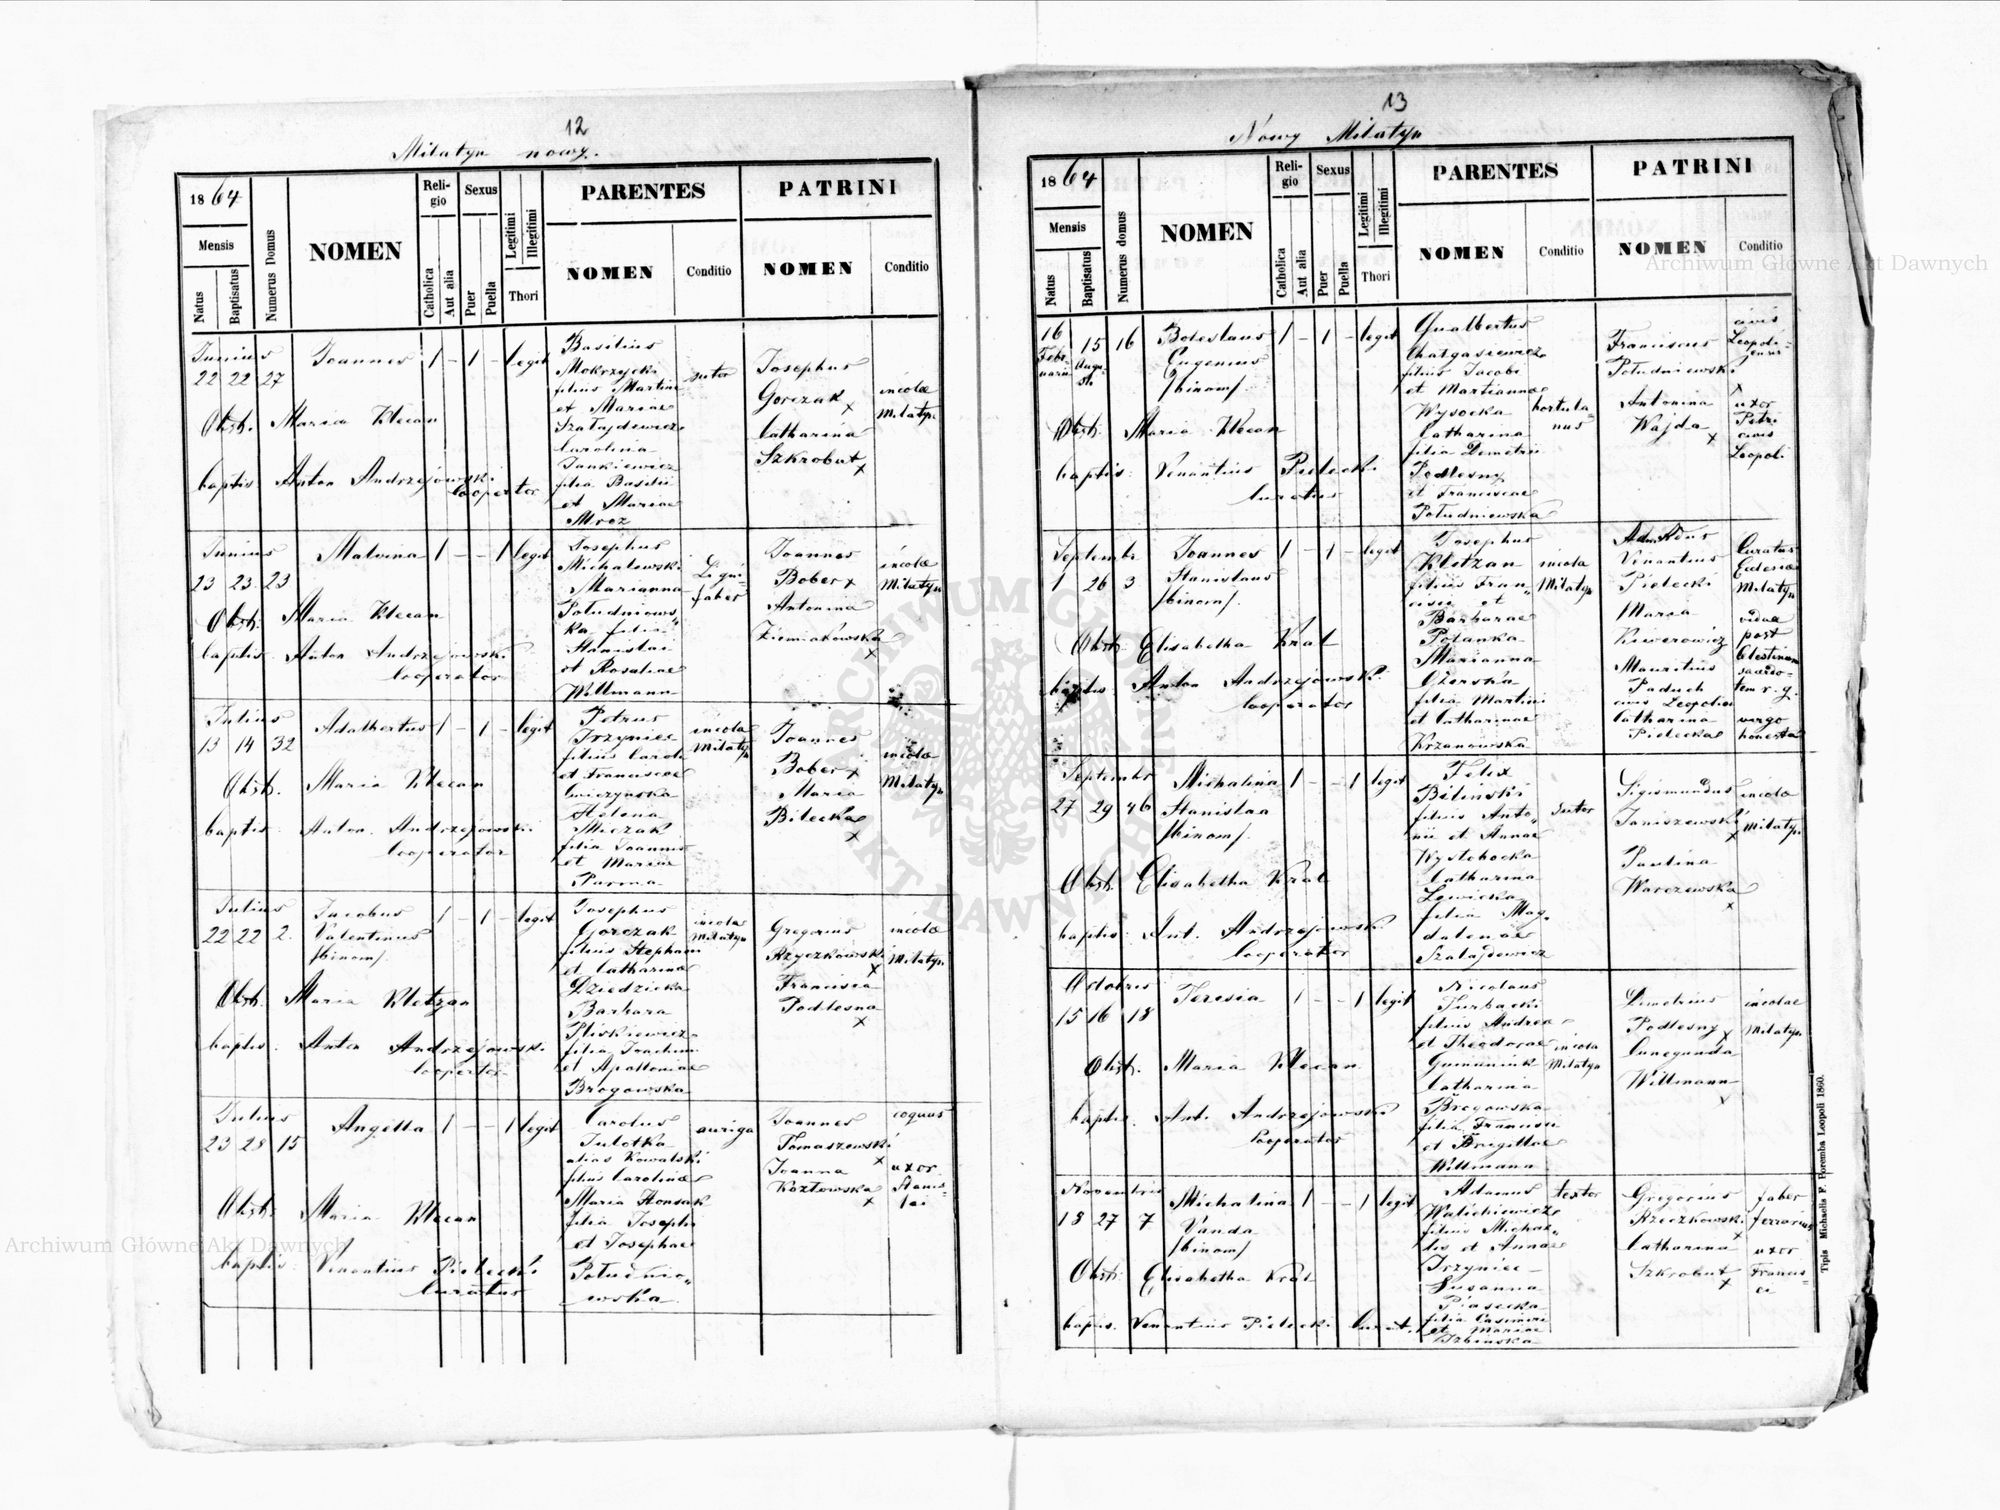 12
Milatyn nowy.
1864
Mensis
Natus
Baptisatus
Numerus Domus
NOMEN
Religio
Catholica
Aut alia
Sexus
Puer
Puella
Legitimi
Illegitimi
Thori
PARENTES
NOMEN
Conditio
PATRINI
NOMEN
Conditio
Junius
22 22 27
Joannes 1 – 1 – legit
Obst. Maria Klecan
baptis. Anton Andrzejowski
Cooperator
Basilius
Mokrzycki
filius Martini
et Mariae
Szałajdewicz
Carolina
Jankiewicz
filia Basilii
et Mariae
Mroz
sutor
Josephus
Gorczak x
Catharina
Szkrobut x
incolae
Milatyn
Junius
23 23 23
Malvina 1 – – 1 legit
Obst. Maria Klecan
baptis. Anton Andrzejowski
Cooperator
Josephus
Michalewski
Marianna
Południows„
ka filia
Stanislai
et Rosaliae
Willmann
Ligni„
faber
Joannes
Bober x
Antonina
Ziemiakowska
x
incolae
Milatyn
Julius
13 14 32
Adalbertus 1 – 1 – legit
Obst. Maria Klecan
baptis. Anton. Andrzejowski
Cooperator
Petrus
Trzyniec
filius Caroli
et Franciscae
Helena
Mleczak
filia Joannis
et Mariae
Parma
incola
Milatyn
Joannes
Bober x
Maria
Bilecka
x
incolae
Milatyn
Julius
22 22 2.
Jacobus 1 – 1 – legit
Valentinus
/binom/
Obst. Maria Kletzan
baptis. Anton Andrzejowski
Cooperator
Josephus
Gorczak
filius Stephani
et Catharinae
Dziedzicka
Barbara
Pliskiewicz
filia Joachimi
et Apolloniae
Brogowska
incolae
Milatyn
Gregorius
Rzyczkowski
x
Francisca
Podlesna
x
incolae
Milatyn
Julius
23 28 15
Angella 1 – – 1 legit
Obst. Maria Klecan
baptis: Venantius Pielecki
Curatus
Carolus
Julotka
alias Kowalski
filius Carolinae
Maria Honsak
filia Josephi
et Josephae
Południo„
wska
auriga
Joannes
Tomaszewski
x
Joanna
Kozłowska
x
coquus
uxor
Stanis„
lai
13
Nowy Milatyn
1864
Mensis
Natus
Baptisatus
Numerus domus
NOMEN
Religio
Catholica
Aut alia
Sexus
Puer
Puella
Legitimi
Illegitimi
Thori
PARENTES
NOMEN
Conditio
PATRINI
NOMEN
Conditio
16 15 16
Febr„
uarii
Augu„
sti
Boleslaus 1 – 1 – legit
Eugenius
/binom/.
Obst. Maria Klecan
baptis: Venantius Pielecki
Curatus
Gualbertus
Chałgasiewicz
filius Jacobi
et Martiannae
Wysocka
Catharina
filia Demetrii
Podlesny
et Franciscae
Południewska
hortula„
nus
Franciscus
Południewski
x
Antonina
Wajda x
civis
Leopoli„
ensis
uxor
Petri
civis
Leopoli
Septembr
1 26 3
Joannes 1 – 1 – legit
Stanislaus
/binom/.
Obst. Elisabetha Kral
baptis. Anton Andrzejowski
Cooperator
Josephus
Kletzan
filius Fran„
cisci et
Barbarae
Polanka
Marianna
Olerska
filia Martini
et Catharinae
Krzanowska
incola
Milatyn
Venantius
Pielecki
Maria
Kiwerowicz
Mauritius
Paduch
civis Leopolien
Catharina
Pielecka
Curatus
Ecclesiae
Milatyn
vidua
post
Celestinum
sacerdo„
tem r. g.
virgo
honesta
Septembr
27 29 46
Michalina 1 – – 1 legit
Stanislaa
/binom/.
Obst. Elisabetha Kral
baptis: Ant. Andrzejowski
Cooperator
Felix
Biliński
filius Anto„
nii et Annae
Wystchocka
Catharina
Lewicka
filia Mag„
dalenae
Szalajdewicz
sutor
Sigismundus
Janiszewski
x
Paulina
Warczewska
x
incolae
Milatyn
Octobris
15 16 18
Teresia 1 – – 1 legit
Obst. Maria Klecan
baptis. Ant. Andrzejowski
Cooperator
Nicolaus
Turbacki
filius Andreae
et Theodorae
Gumianiuk
Catharina
Bregowska
filia Francisci
et Brigittae
Willmann
incola
Milatyn
Demetrius
Podlesny x
Cunegunda
Willmann
x
incolae
Milatyn
Novembris
18 27 7
Michalina 1 – – 1 legit
Vanda
/binom/
Obst: Elisabetha Kral
baptis. Venantius Pielecki Curat.
Adamus
Walichiewicz
filius Michae„
lis et Annae
Trzyniec
Susanna
Piasecka
filia Casimiri
et Mariae
Izbinska
textor
Gregorius
Rzeczkowski
x
Catharina
Szkrobut
x
faber
ferrarius
uxor
Francis„
ci
Tipis Michaelis F. Poremba Leopoli 1860.
Archiwum Główne Akt Dawnych
Archiwum Główne Akt Dawnych
ARCHIWUM GŁÓWNE
AKT DAWNYCH